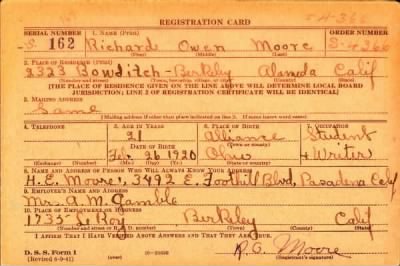 REGISTRATION CARD
SERIAL NUMBER 1. NAME (Print) ORDER NUMBER
S. 162 Richard Owen Moore S-4366
2. PLACE OF RESIDENCE (Print)
2323 Bowditch - Berkeley Alameda Calif
(Number and street) (Town, township, village, or city) (County) (State)
[THE PLACE OF RESIDENCE GIVEN ON THE LINE ABOVE WILL DETERMINE LOCAL BOARD
JURISDICTION; LINE 2 OF REGISTRATION CERTIFICATE WILL BE IDENTICAL]
3. MAILING ADDRESS
Same
[Mailing address if other than place indicated on line 2. If same insert word same]
4. TELEPHONE 5. AGE IN YEARS 6. PLACE OF BIRTH 7. OCCUPATION
21 Alliance Student
DATE OF BIRTH (Town or county)
Feb. 26 1920 Ohio + Writer
(Exchange) (Number) (Mo.) (Day) (Yr.) (State or country)
8. NAME AND ADDRESS OF PERSON WHO WILL ALWAYS KNOW YOUR ADDRESS
H. E. Moore, 3492 E. Foothill Blvd, Pasadena Calif
9. EMPLOYER'S NAME AND ADDRESS
Mrs. A. M. Gamble
10. PLACE OF EMPLOYMENT OR BUSINESS
1735 Le Roy Berkeley Calif
(Number and street or R. F. D. number) (Town) (County) (State)
I AFFIRM THAT I HAVE VERIFIED ABOVE ANSWERS AND THAT THEY ARE TRUE.
D. S. S. Form 1 R. O. Moore
(Revised 6-9-41) (Registrant's signature)